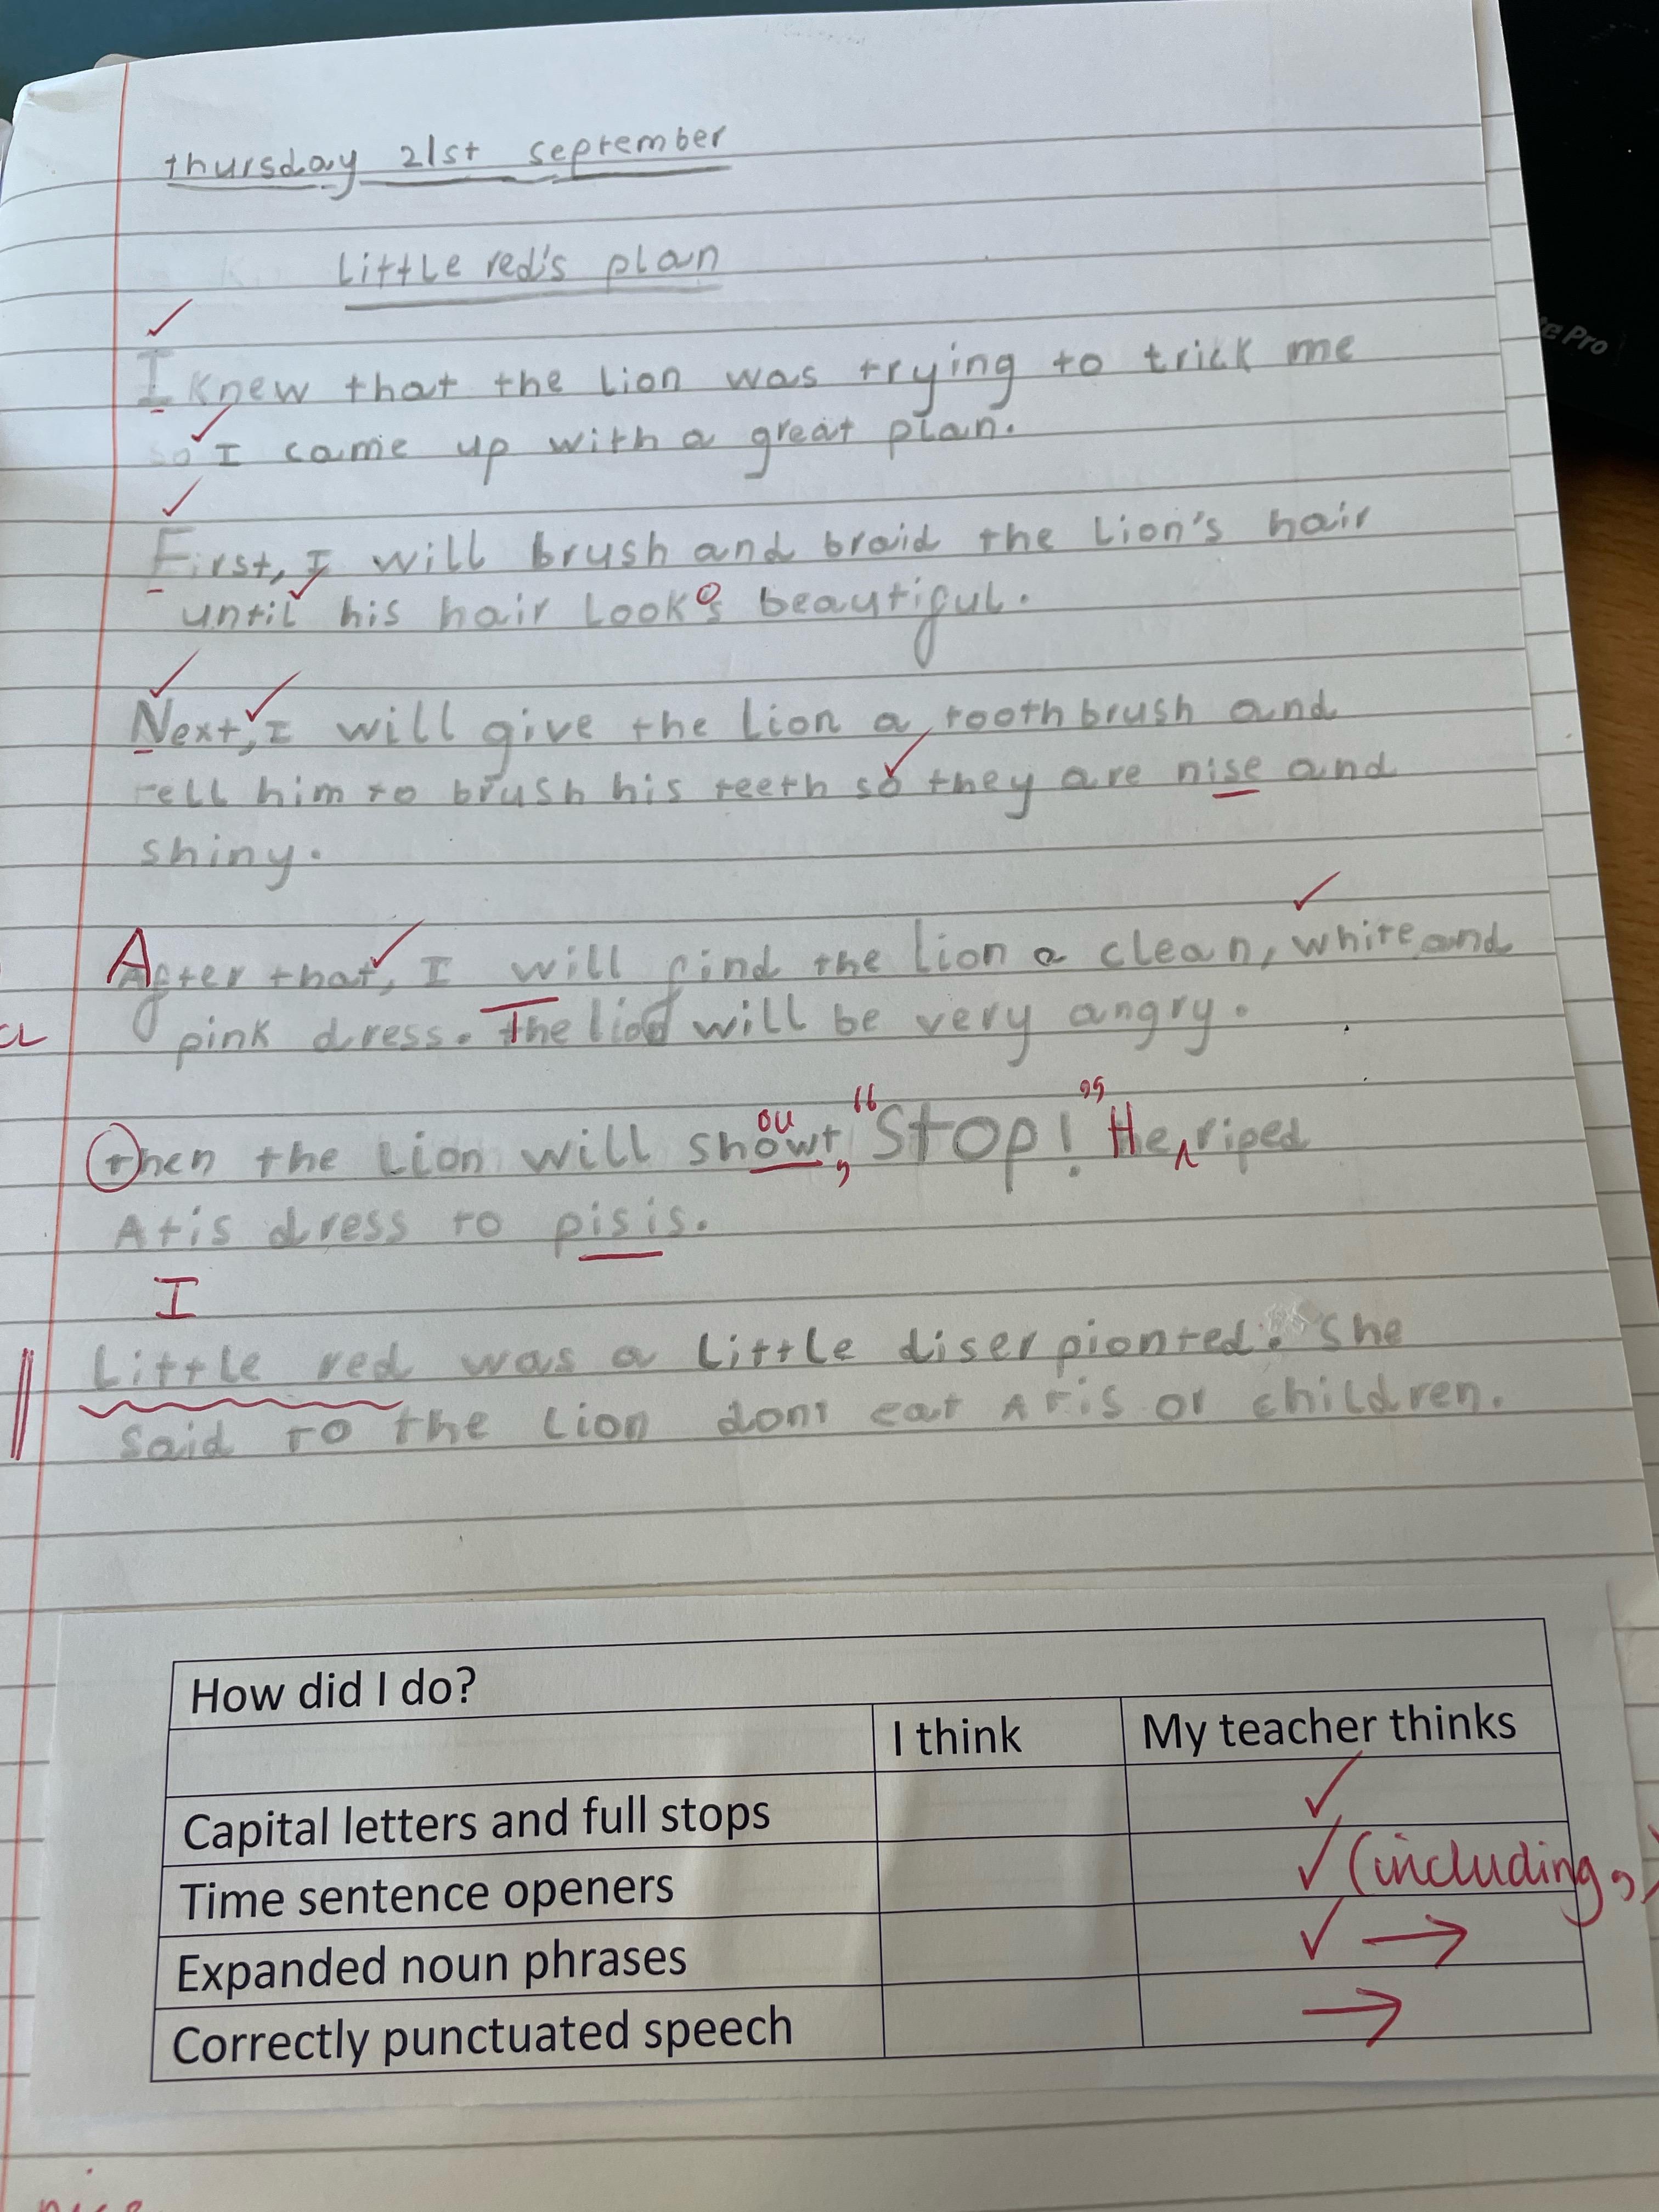 thursday 21st september
Little red's plan
I knew that the Lion was trying to trick me
so I came up with a great plan.
First, I will brush and braid the Lion's hair
until his hair Looks beautiful.
Next, I will give the Lion a toothbrush and
tell him to brush his teeth so they are nise and
shiny.
After that, I will find the Lion a clean, white and
pink dress. The lion will be very angry.
ou “ ”
then the Lion will showt, Stop! He riped
Atis dress to pisis.
I
Little red was a Little diserpionted. She
said to the Lion dont eat Atis or children.
How did I do?
I think My teacher thinks
Capital letters and full stops ✓
Time sentence openers ✓ (including ,)
Expanded noun phrases ✓ →
Correctly punctuated speech →